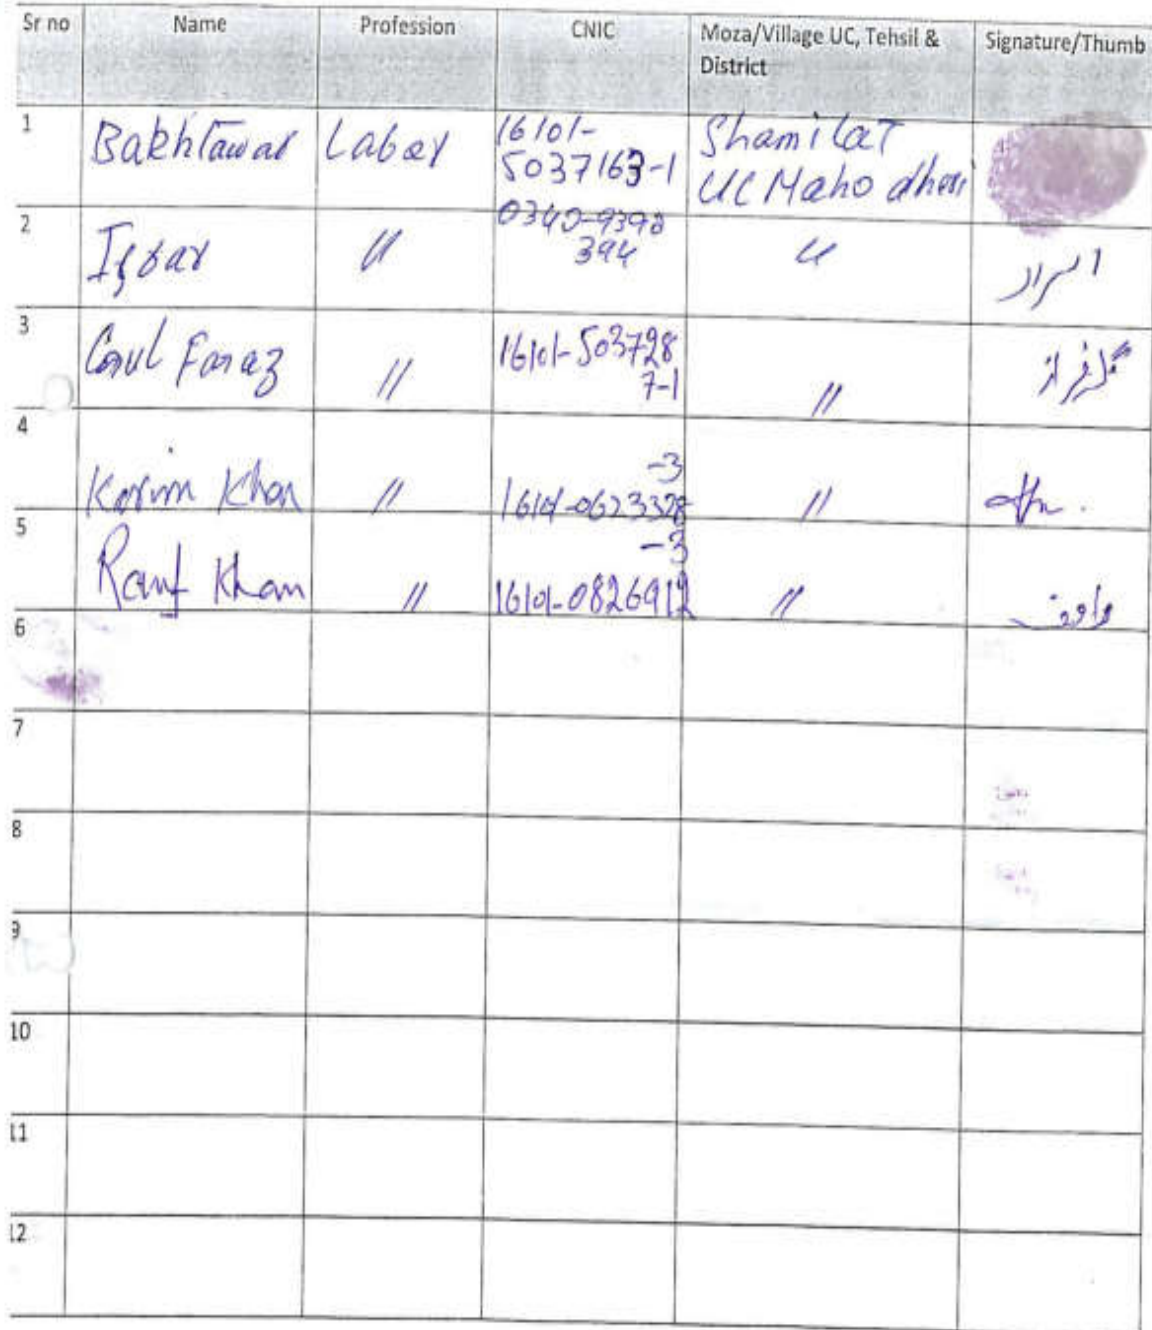 Sr no Name Profession CNIC Moza/Village UC, Tehsil & District Signature/Thumb
1 Bakhtawar Labar 16101-5037163-1 Shamilat UC Maho dheri
2 Iqrar 〃 0340-9398394 〃
3 Gul Faraz 〃 16101-5037287-1 〃 گلفراز
4 Karim Khan 〃 16101-0623328-3 〃
5 Rauf Khan 〃 16101-0826912-3 〃
6
7
8
9
10
11
12